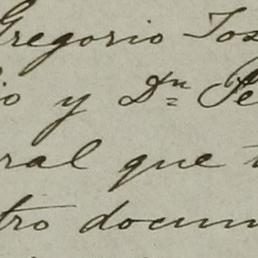 Gregorio Jos
io y Dn Fe
ral que t
tro docum